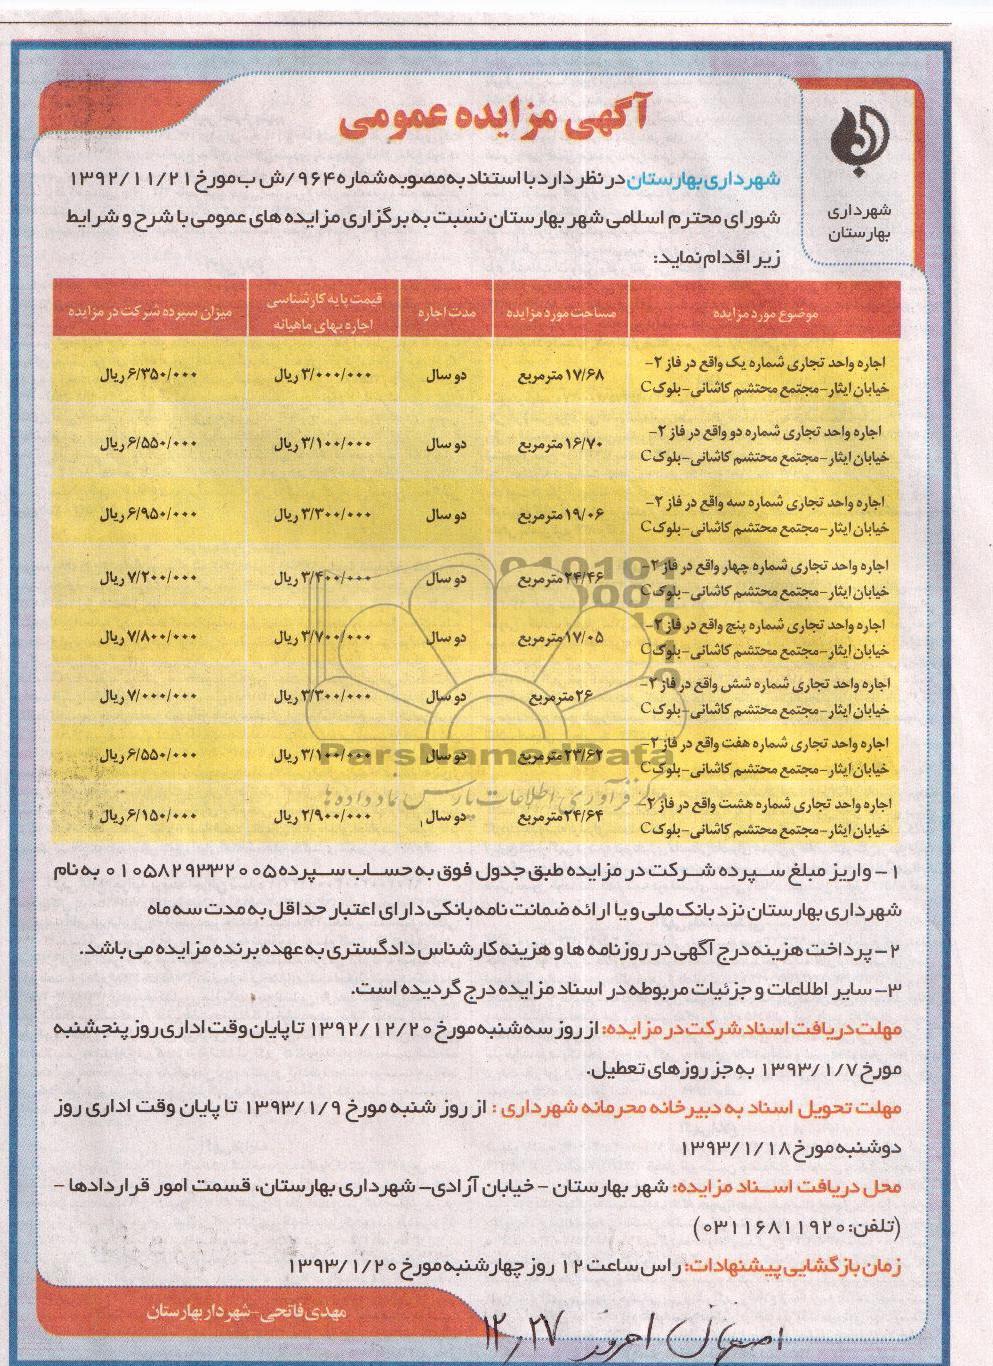 آگهی مزایده عمومی
شهرداری
بهارستان
شهرداری بهارستان در نظر دارد با استناد به مصوبه شماره ۹۶۴/ش ب مورخ ۱۳۹۲/۱۱/۲۱
شورای محترم اسلامی شهر بهارستان نسبت به برگزاری مزایده های عمومی با شرح و شرایط
زیر اقدام نماید:
موضوع مورد مزایده مساحت مورد مزایده مدت اجاره قیمت پایه کارشناسی میزان سپرده شرکت در مزایده
اجاره بهای ماهیانه
اجاره واحد تجاری شماره یک واقع در فاز ۲-
خیابان ایثار-مجتمع محتشم کاشانی-بلوک C ۱۷/۶۸مترمربع دو سال ۳/۰۰۰/۰۰۰ ریال ۶/۳۵۰/۰۰۰ ریال
اجاره واحد تجاری شماره دو واقع در فاز ۲-
خیابان ایثار-مجتمع محتشم کاشانی-بلوک C ۱۶/۷۰مترمربع دو سال ۳/۱۰۰/۰۰۰ ریال ۶/۵۵۰/۰۰۰ ریال
اجاره واحد تجاری شماره سه واقع در فاز ۲-
خیابان ایثار-مجتمع محتشم کاشانی-بلوک C ۱۹/۰۶مترمربع دو سال ۳/۳۰۰/۰۰۰ ریال ۶/۹۵۰/۰۰۰ ریال
اجاره واحد تجاری شماره چهار واقع در فاز ۲-
خیابان ایثار-مجتمع محتشم کاشانی-بلوک C ۲۴/۴۶مترمربع دو سال ۳/۴۰۰/۰۰۰ ریال ۷/۲۰۰/۰۰۰ ریال
اجاره واحد تجاری شماره پنج واقع در فاز ۲-
خیابان ایثار-مجتمع محتشم کاشانی-بلوک C ۱۷/۰۵مترمربع دو سال ۳/۷۰۰/۰۰۰ ریال ۷/۸۰۰/۰۰۰ ریال
اجاره واحد تجاری شماره شش واقع در فاز ۲-
خیابان ایثار-مجتمع محتشم کاشانی-بلوک C ۲۶مترمربع دو سال ۳/۳۰۰/۰۰۰ ریال ۷/۰۰۰/۰۰۰ ریال
اجاره واحد تجاری شماره هفت واقع در فاز ۲-
خیابان ایثار-مجتمع محتشم کاشانی-بلوک C ۲۳/۶۲مترمربع دو سال ۳/۱۰۰/۰۰۰ ریال ۶/۵۵۰/۰۰۰ ریال
اجاره واحد تجاری شماره هشت واقع در فاز ۲-
خیابان ایثار-مجتمع محتشم کاشانی-بلوک C ۲۴/۶۴مترمربع دو سال ۲/۹۰۰/۰۰۰ ریال ۶/۱۵۰/۰۰۰ ریال
ParsNamadData
مرکز فرآوری اطلاعات پارس نماد داده ها
۱- واریز مبلغ سپرده شرکت در مزایده طبق جدول فوق به حساب سپرده ۰۱۰۵۸۲۹۳۳۲۰۰۵ به نام
شهرداری بهارستان نزد بانک ملی و یا ارائه ضمانت نامه بانکی دارای اعتبار حداقل به مدت سه ماه
۲- پرداخت هزینه درج آگهی در روزنامه ها و هزینه کارشناس دادگستری به عهده برنده مزایده می باشد.
۳- سایر اطلاعات و جزئیات مربوطه در اسناد مزایده درج گردیده است.
مهلت دریافت اسناد شرکت در مزایده: از روز سه شنبه مورخ ۱۳۹۲/۱۲/۲۰ تا پایان وقت اداری روز پنجشنبه
مورخ ۱۳۹۳/۱/۷ به جز روزهای تعطیل.
مهلت تحویل اسناد به دبیرخانه محرمانه شهرداری : از روز شنبه مورخ ۱۳۹۳/۱/۹ تا پایان وقت اداری روز
دوشنبه مورخ ۱۳۹۳/۱/۱۸
محل دریافت اسناد مزایده: شهر بهارستان - خیابان آزادی- شهرداری بهارستان، قسمت امور قراردادها -
(تلفن: ۰۳۱۱۶۸۱۱۹۲۰)
زمان بازگشایی پیشنهادات: راس ساعت ۱۲ روز چهارشنبه مورخ ۱۳۹۳/۱/۲۰
مهدی فاتحی-شهردار بهارستان
اصفهان امروز ۱۲,۲۷